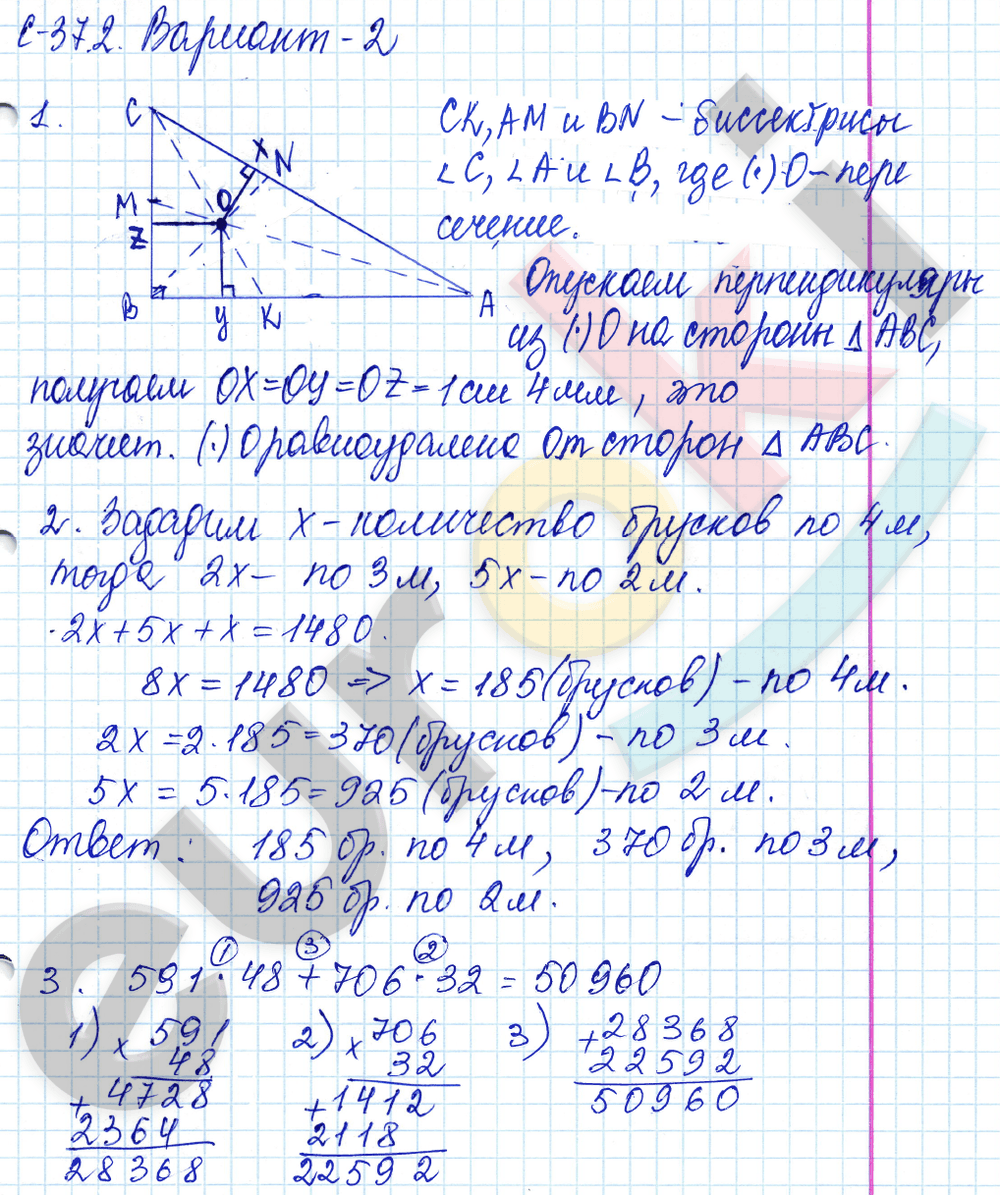 С-37.2. Вариант-2
1.
C
X
N
M
O
Z
B
Y
K
A
CK, AM и BN - биссектрисы
∠C, ∠A и ∠B, где (·)O - пере
сечение.
Опускаем перпендикуляры
из (·)O на стороны Δ ABC,
получаем OX=OY=OZ=1см 4мм, это
значит. (·)O равноудалена от сторон Δ ABC.
2. Зададим x - количество брусков по 4м,
тогда 2x - по 3м, 5x - по 2м.
·2x+5x+x=1480.
8x=1480 => x=185(брусков) - по 4м.
2x=2·185=370(брусков) - по 3м.
5x=5·185=925(брусков)-по 2м.
Ответ: 185 бр. по 4м, 370 бр. по 3м,
925 бр. по 2м.
1 3 2
3. 591·48+706·32=50960
1) x 591 2) x 706 3) +28368
48 32 22592
+4728 +1412 50960
2364 2118
28368 22592
euroki